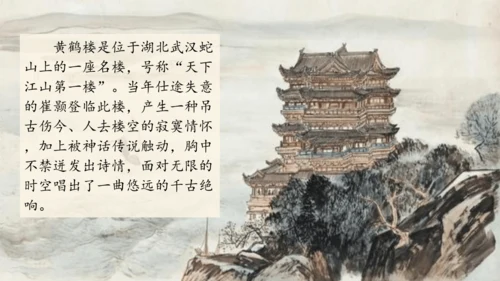 黄鹤楼是位于湖北武汉蛇
山上的一座名楼，号称“天下
江山第一楼”。当年仕途失意
的崔颢登临此楼，产生一种吊
古伤今、人去楼空的寂寞情怀
，加上被神话传说触动，胸中
不禁迸发出诗情，面对无限的
时空唱出了一曲悠远的千古绝
响。